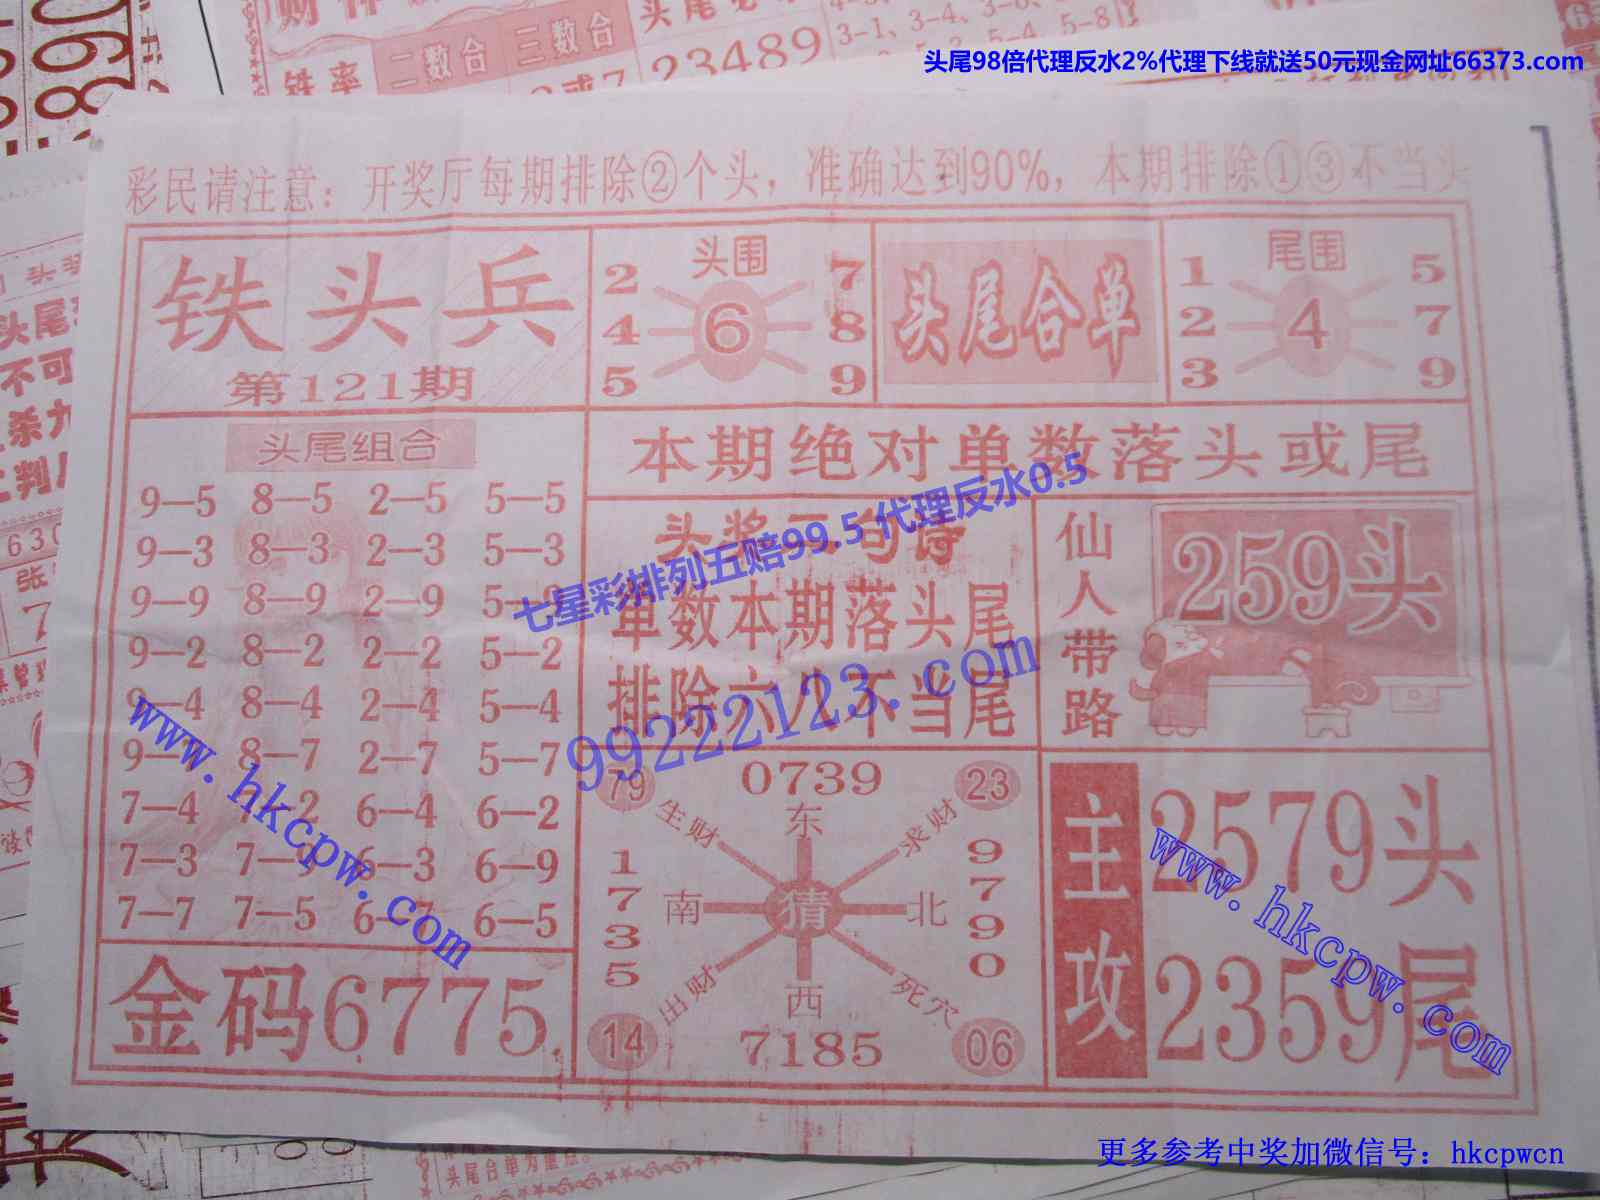 头尾98倍代理反水2%代理下线就送50元现金网址66373.com
二数合 三数合
铁率
23489
彩民请注意：开奖厅每期排除②个头，准确达到90%，本期排除①③不当头
铁头兵
第121期
头围
2 7
4 6 8
5 9
头尾合单
尾围
1 5
2 4 7
3 9
本期绝对单数落头或尾
头尾组合
9—5 8—5 2—5 5—5
9—3 8—3 2—3 5—3
9—9 8—9 2—9
9—2 8—2 2—2 5—2
9—4 8—4 2—4 5—4
9—7 8—7 2—7 5—7
7—4 7—2 6—4 6—2
7—3 6—3 6—9
7—7 7—5 6—7 6—5
金码6775
头奖二句诗
单数本期落头尾
排除六八不当尾
仙人带路
259头
79 0739 23
生财 东 求财
1735 南 猜 北 9790
出财 西 死穴
14 7185 06
主攻
2579头
2359尾
七星彩排列五赔99.5代理反水0.5
99222123.com
www.hkcpw.com
www.hkcpw.com
头尾合单为重点。
更多参考中奖加微信号：hkcpwcn